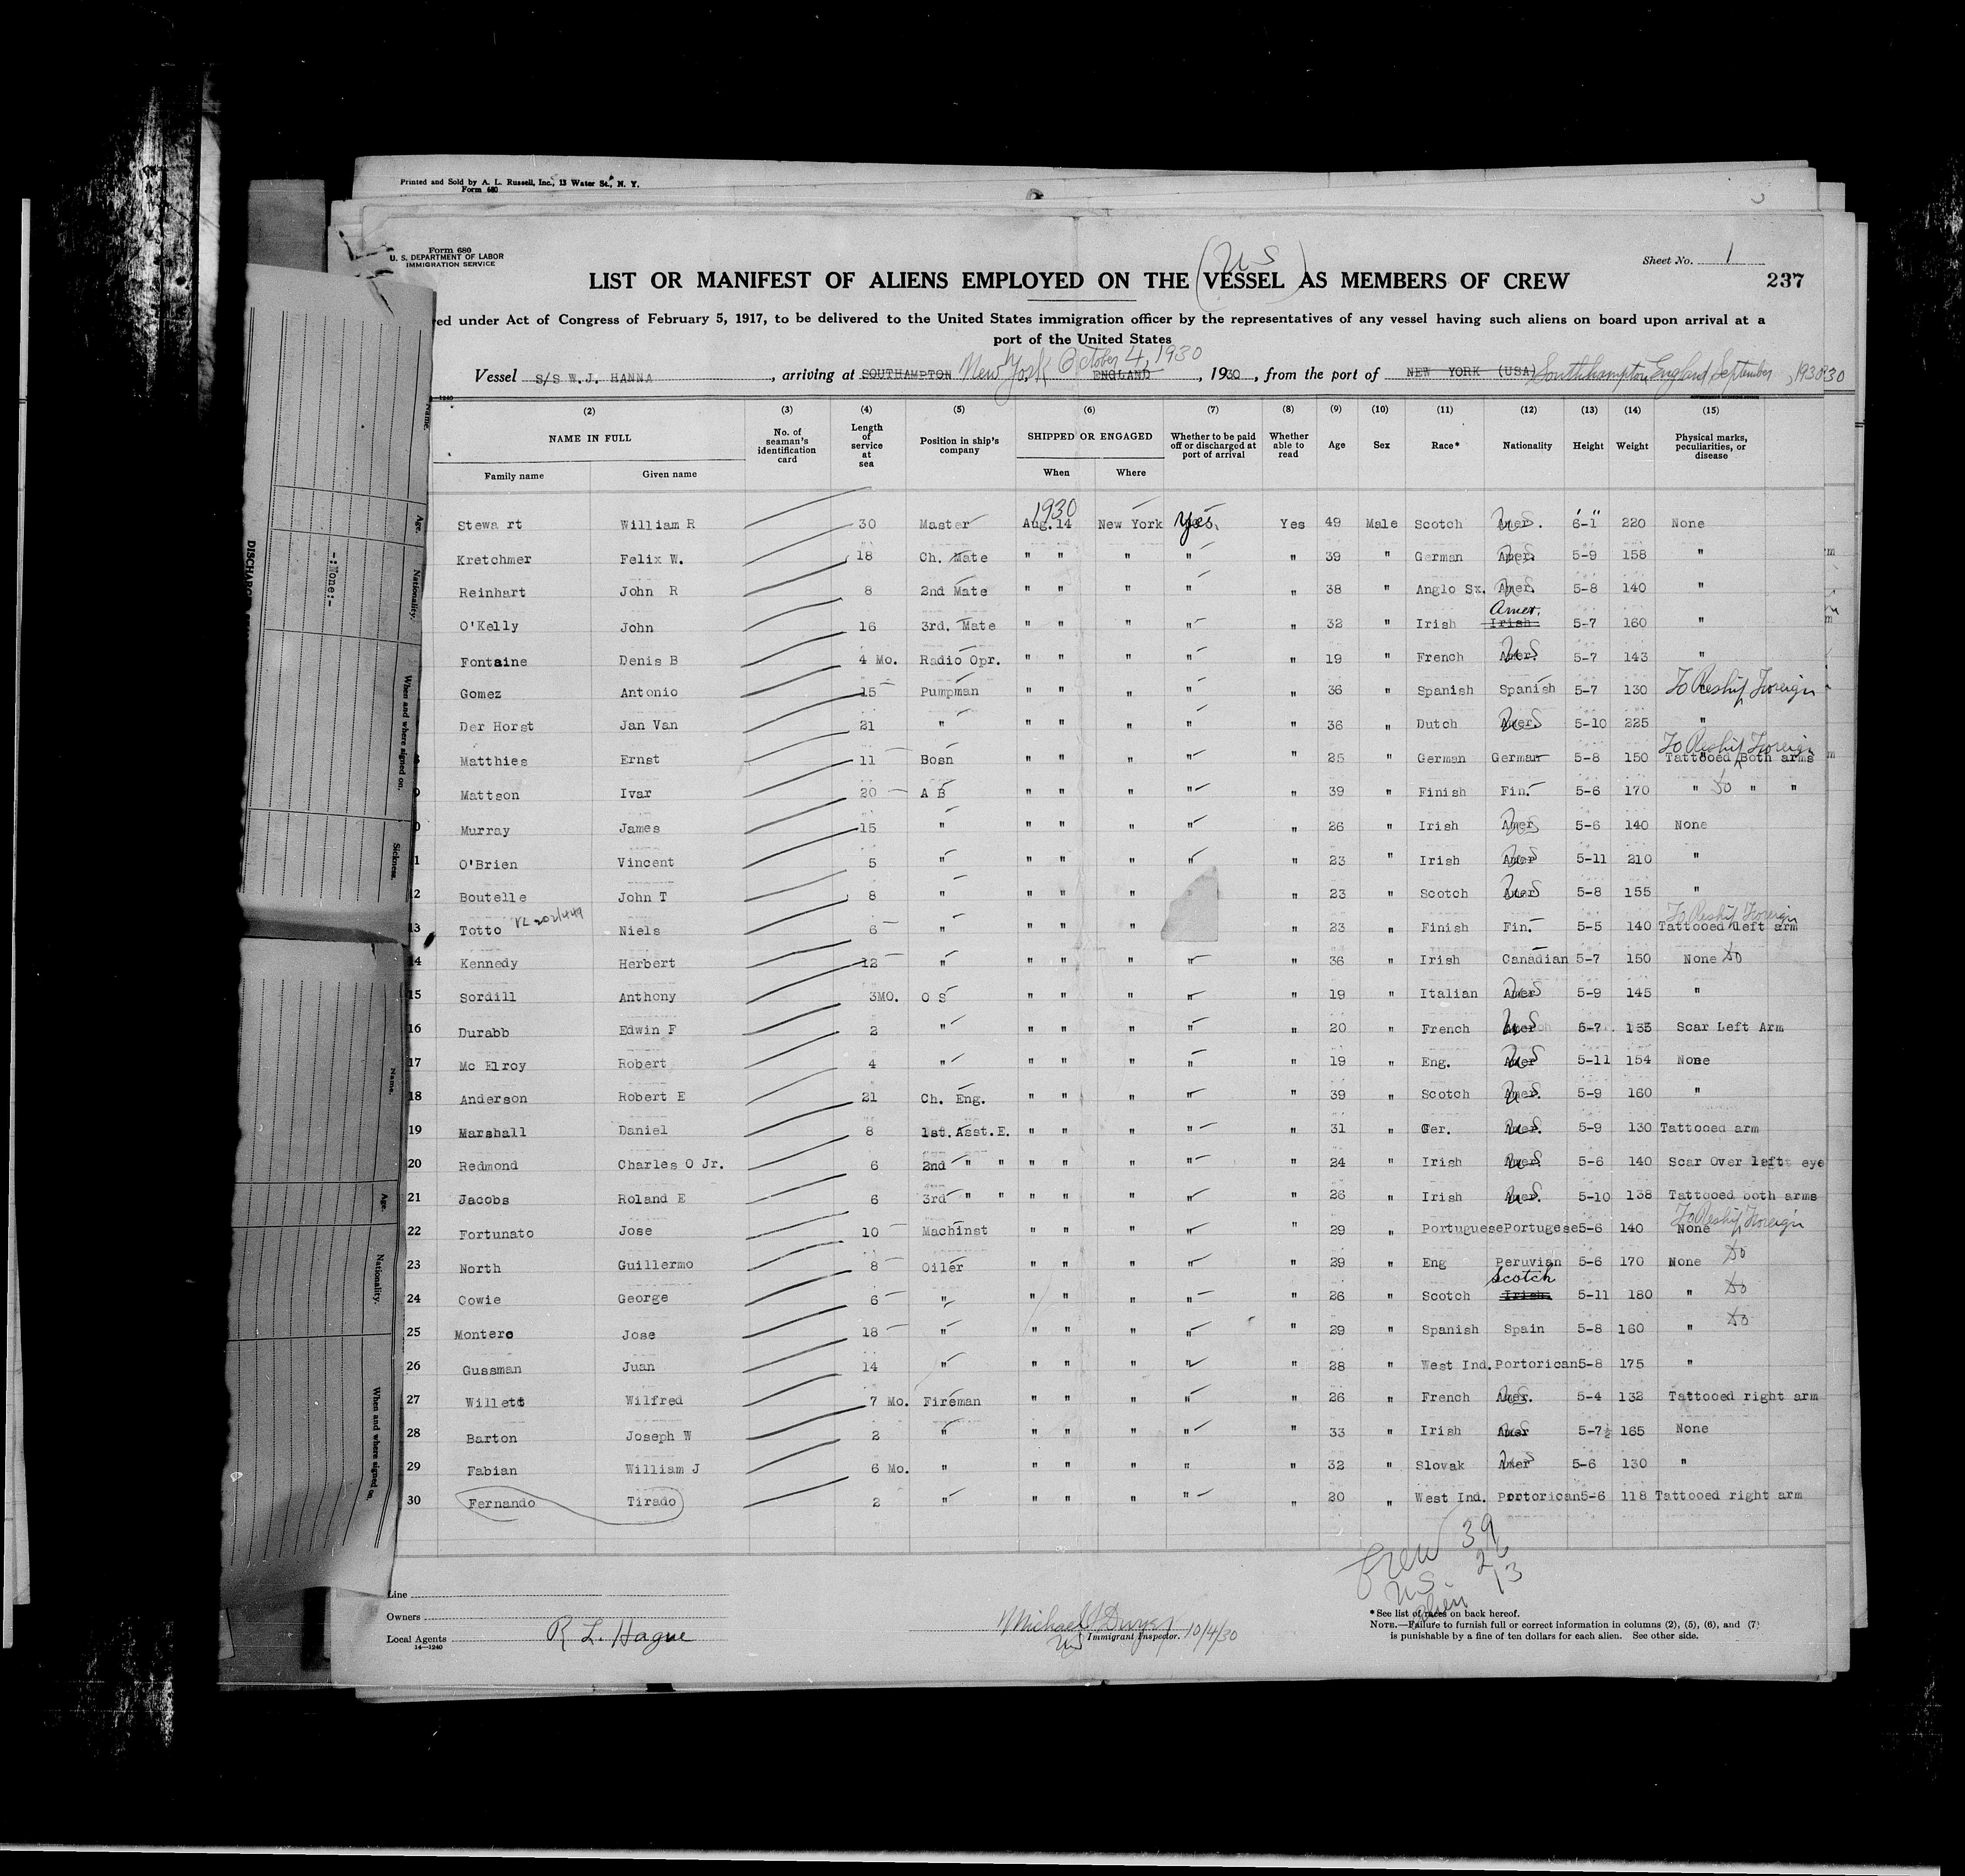 Printed and Sold by A. L. Russell, Inc., 13 Water St., N. Y.
Form 680
Form 680
U. S. DEPARTMENT OF LABOR
IMMIGRATION SERVICE
Sheet No. 1
(US)
LIST OR MANIFEST OF ALIENS EMPLOYED ON THE VESSEL AS MEMBERS OF CREW
237
ed under Act of Congress of February 5, 1917, to be delivered to the United States immigration officer by the representatives of any vessel having such aliens on board upon arrival at a
port of the United States
Vessel S/S W.J. HANNA, arriving at SOUTHAMPTON ENGLAND New York October 4, 1930, 1930, from the port of NEW YORK (USA) Southhampton, England, September, 1930 30
(2) (3) (4) (5) (6) (7) (8) (9) (10) (11) (12) (13) (14) (15)
NAME IN FULL No. of seaman's identification card Length of service at sea Position in ship's company SHIPPED OR ENGAGED Whether to be paid off or discharged at port of arrival Whether able to read Age Sex Race* Nationality Height Weight Physical marks, peculiarities, or disease
Family name Given name When Where
1930
Stewart William R 30 Master Aug. 14 New York Yes Yes 49 Male Scotch Amer. US 6-1 220 None
Kretchmer Felix W. 18 Ch. Mate " " " " " 39 " German Amer. US 5-9 158 "
Reinhart John R 8 2nd Mate " " " " " 38 " Anglo Sx. Amer. US 5-8 140 "
O'Kelly John 16 3rd. Mate " " " " " 32 " Irish Irish Amer. 5-7 160 "
Fontaine Denis B 4 Mo. Radio Opr. " " " " " 19 " French Amer. US 5-7 143 "
Gomez Antonio 15 Pumpman " " " " " 36 " Spanish Spanish 5-7 130 " To Reship Foreign
Der Horst Jan Van 21 " " " " " " 36 " Dutch Amer US 5-10 225 "
8 Matthies Ernst 11 Bosn " " " " " 25 " German German 5-8 150 Tattooed Both arms To Reship Foreign
9 Mattson Ivar 20 A B " " " " " 39 " Finish Fin. 5-6 170 " do " "
0 Murray James 15 " " " " " " 26 " Irish Amer US 5-6 140 None
1 O'Brien Vincent 5 " " " " " " 23 " Irish Amer US 5-11 210 "
12 Boutelle John T 8 " " " " " 23 " Scotch Amer US 5-8 155 "
13 Totto Niels 6 " " " " " 23 " Finish Fin. 5-5 140 Tattooed left arm To Reship Foreign
14 Kennedy Herbert 12 " " " " " " 36 " Irish Canadian 5-7 150 None do
15 Sordill Anthony 3MO. O S " " " " " 19 " Italian Amer US 5-9 145 "
16 Durabb Edwin F 2 " " " " " " 20 " French Amer US 5-7 135 Scar Left Arm
17 Mc Elroy Robert 4 " " " " " " 19 " Eng. Amer US 5-11 154 None
18 Anderson Robert E 21 Ch. Eng. " " " " " 39 " Scotch Amer. US 5-9 160 "
19 Marshall Daniel 8 1st. Asst. E. " " " " " 31 " Ger. Amer. US 5-9 130 Tattooed arm
20 Redmond Charles O Jr. 6 2nd " " " " " " " 24 " Irish Amer. US 5-6 140 Scar Over left eye
21 Jacobs Roland E 6 3rd " " " " " " " 26 " Irish Amer. US 5-10 138 Tattooed both arms
22 Fortunato Jose 10 Machinst " " " " " 29 " Portuguese Portugese 5-6 140 None To Reship Foreign
23 North Guillermo 8 Oiler " " " " " 29 " Eng Peruvian 5-6 170 None do
24 Cowie George 6 " " " " " " 26 " Scotch Irish Scotch 5-11 180 " do
25 Montero Jose 18 " " " " " " 29 " Spanish Spain 5-8 160 " do
26 Gussman Juan 14 " " " " " " 28 " West Ind. Portorican 5-8 175 "
27 Willett Wilfred 7 Mo. Fireman " " " " " 26 " French Amer. US 5-4 132 Tattooed right arm
28 Barton Joseph W 2 " " " " " " 33 " Irish Amer US 5-7½ 165 None
29 Fabian William J 6 Mo. " " " " " " 32 " Slovak Amer US 5-6 130 "
30 Fernando Tirado 2 " " " " " " 20 " West Ind. Portorican 5-6 118 Tattooed right arm
Crew 39
US 26
Alien 13
Line
Owners
Local Agents R L. Hague
14—1240
Michael Dwyer
US Immigrant Inspector. 10/4/30
*See list of races on back hereof.
NOTE.—Failure to furnish full or correct information in columns (2), (5), (6), and (7)
is punishable by a fine of ten dollars for each alien. See other side.
Name.
Age.
Nationality.
When and where signed on.
Sickness.
-:None:-
Name.
Age.
Nationality.
When and where signed on.